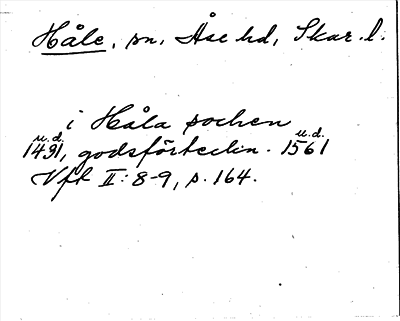 Håle, sn, Åse hd, Skar. l.
i Håla sochen
u.d. u.d.
1491, godsförteckn. 1561
Vft II: 8-9, s. 164.